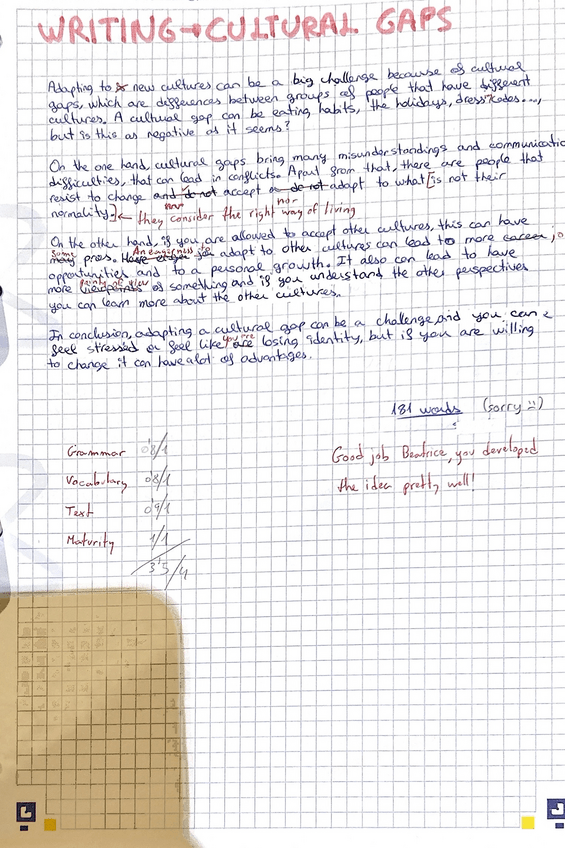 WRITING→CULTURAL GAPS
Adapting to new cultures can be a big challenge because of cultural
gaps, which are differences between groups of people that have different
cultures. A cultural gap can be eating habits, the holidays, dress codes...,
but is this as negative as it seems?
On the one hand, cultural gaps bring many misunderstandings and communicatio
difficulties, that can lead in conflicts. Apart from that, there are people that
resist to change and do not accept or do not adapt to what [is not their
nor
normality.] ← they consider the right way of living
On the other hand, if you are allowed to accept other cultures, this can have
some An eagerness to
many pros. you adapt to other cultures can lead to more career, jo
opportunities and to a personal growth. It also can lead to have
points of view
more viewpoints of something and if you understand the other perspectives
you can learn more about the other cultures.
In conclusion, adapting a cultural gap can be a challenge and you can
you're
feel stressed or feel like are losing identity, but if you are willing
to change it can have a lot of advantages.
181 words (sorry :))
Grammar 0'8/1
Vocabulary 0'8/1
Text 0'9/1
Maturity 1/1
3'5/4
Good job Beatrice, you developed
the idea pretty well!